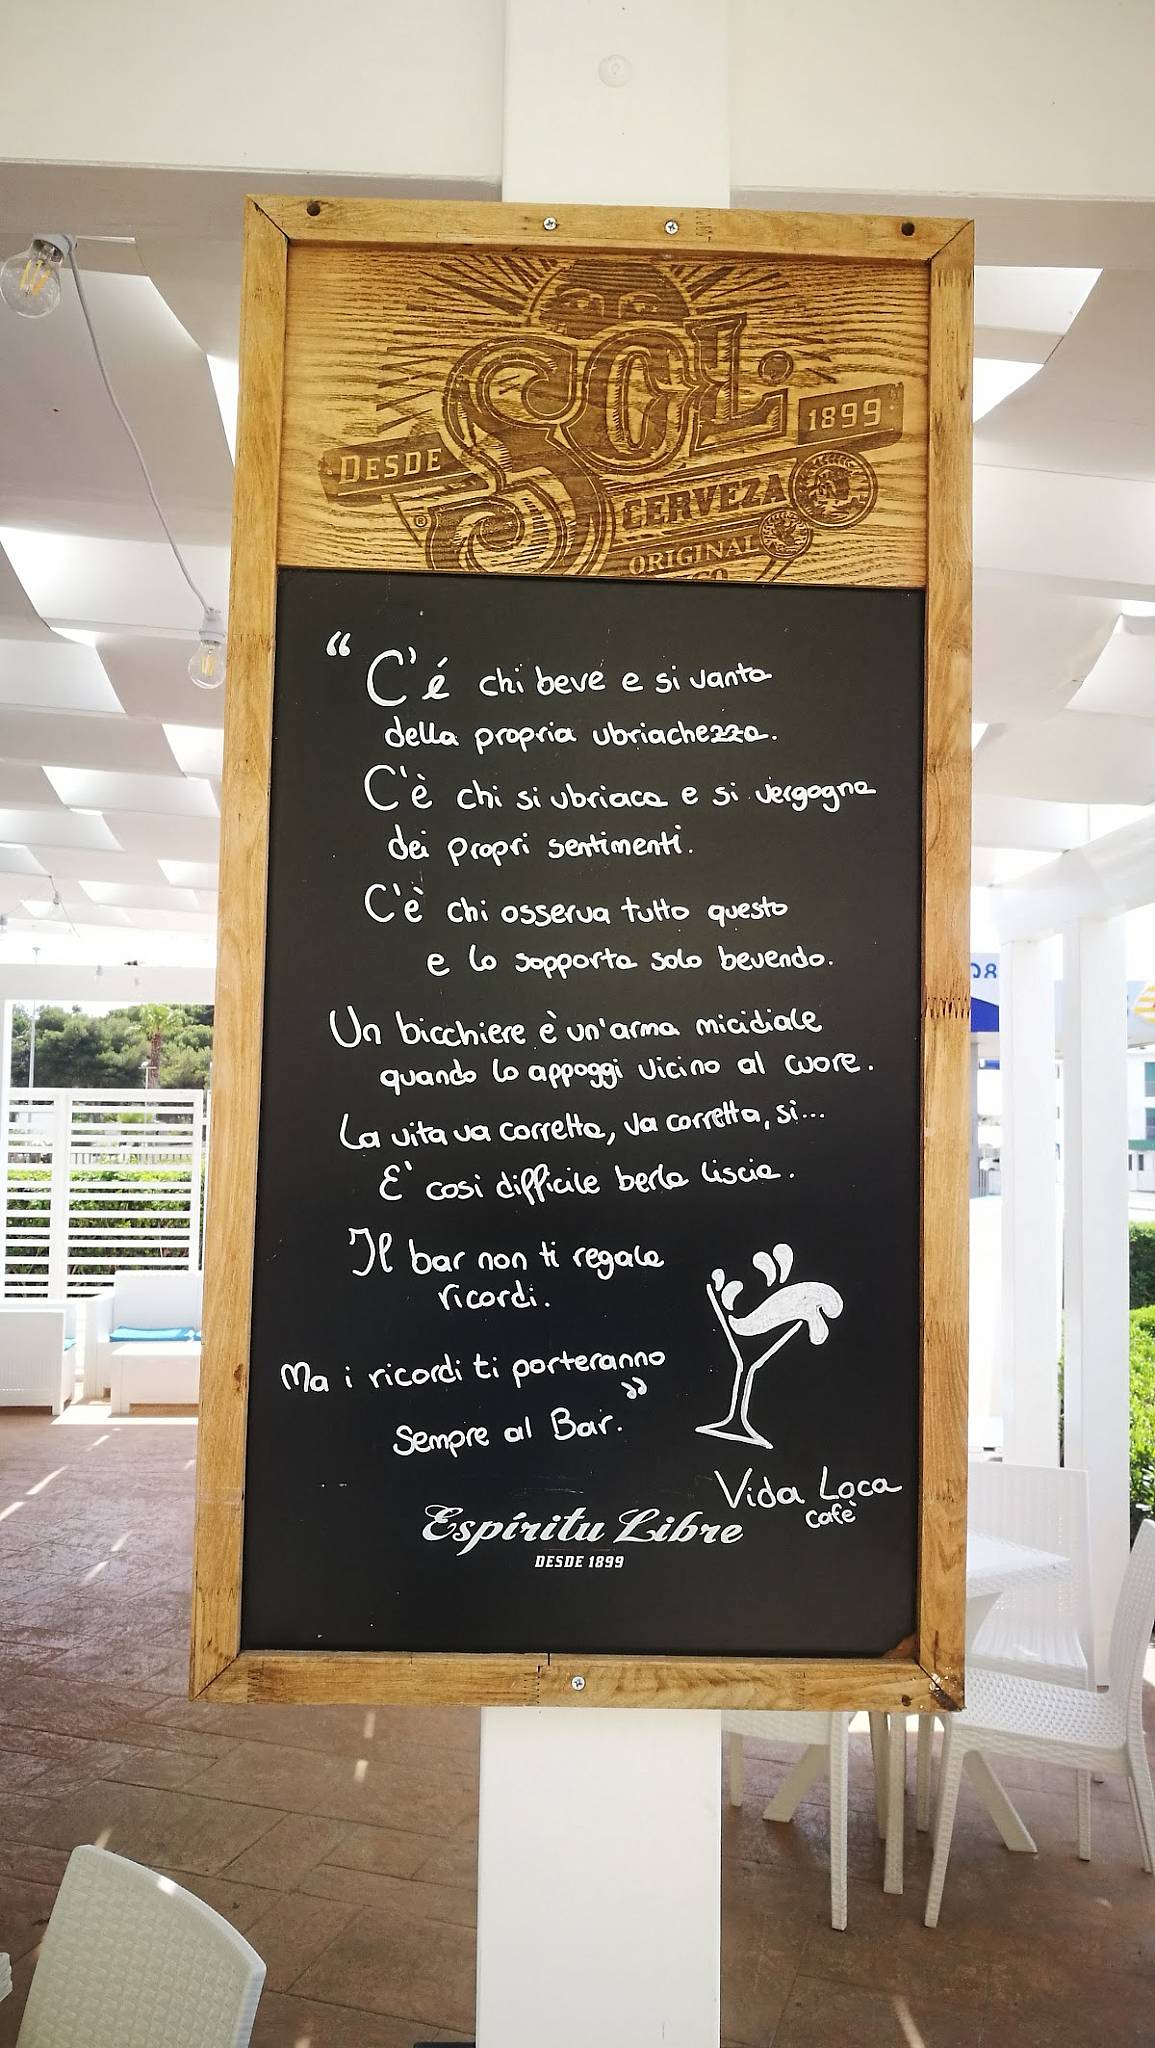 SOL
DESDE
1899
®
CERVEZA
ORIGINAL
“ C'é chi beve e si vanta
della propria ubriachezza.
C'è chi si ubriaca e si vergogna
dei propri sentimenti.
C'è chi osserva tutto questo
e lo sopporta solo bevendo.
Un bicchiere è un'arma micidiale
quando lo appoggi vicino al cuore.
La vita va corretta, va corretta, si...
E' cosi difficile berla liscia.
Il bar non ti regala
ricordi.
Ma i ricordi ti porteranno
sempre al Bar.”
Vida Loca
cafè
Espíritu Libre
DESDE 1899